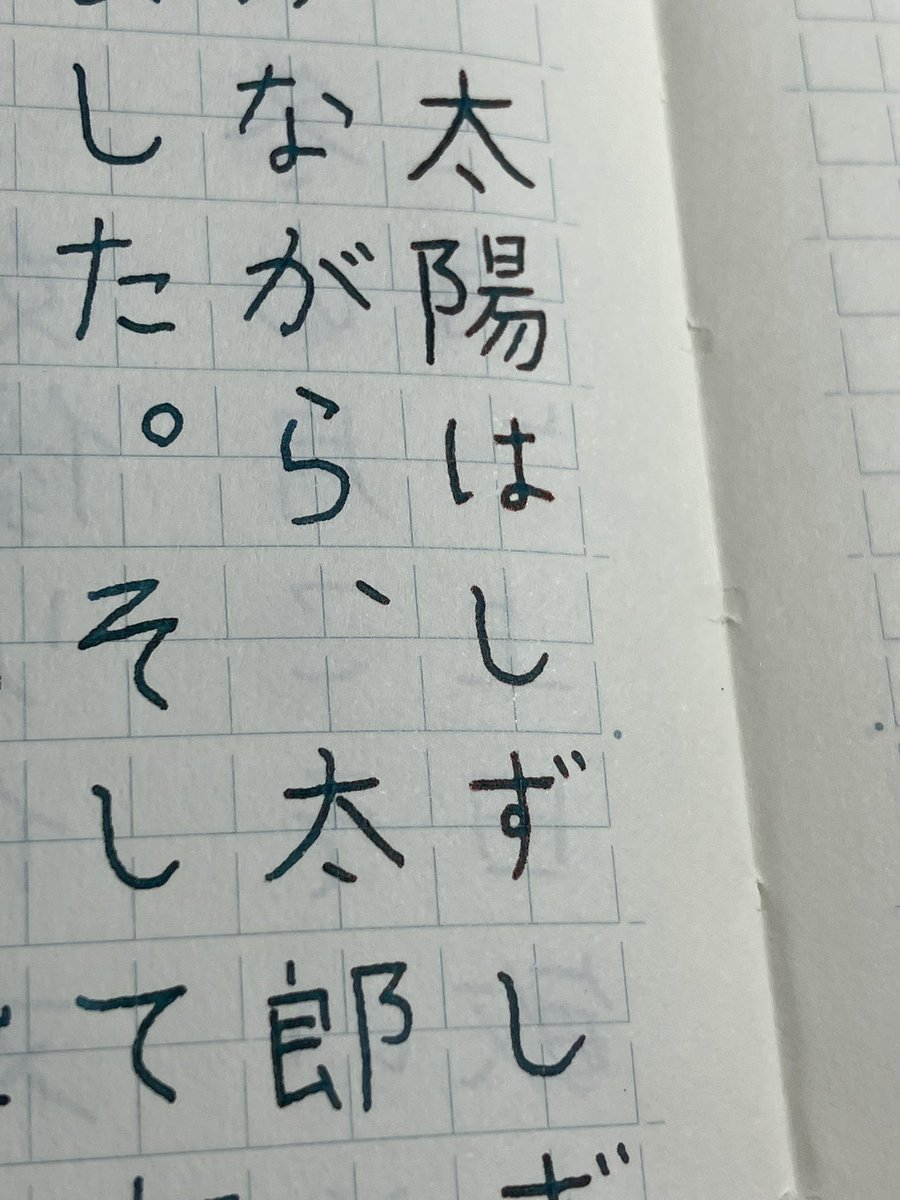 太陽はしずしず
ながら、太郎
した。そして